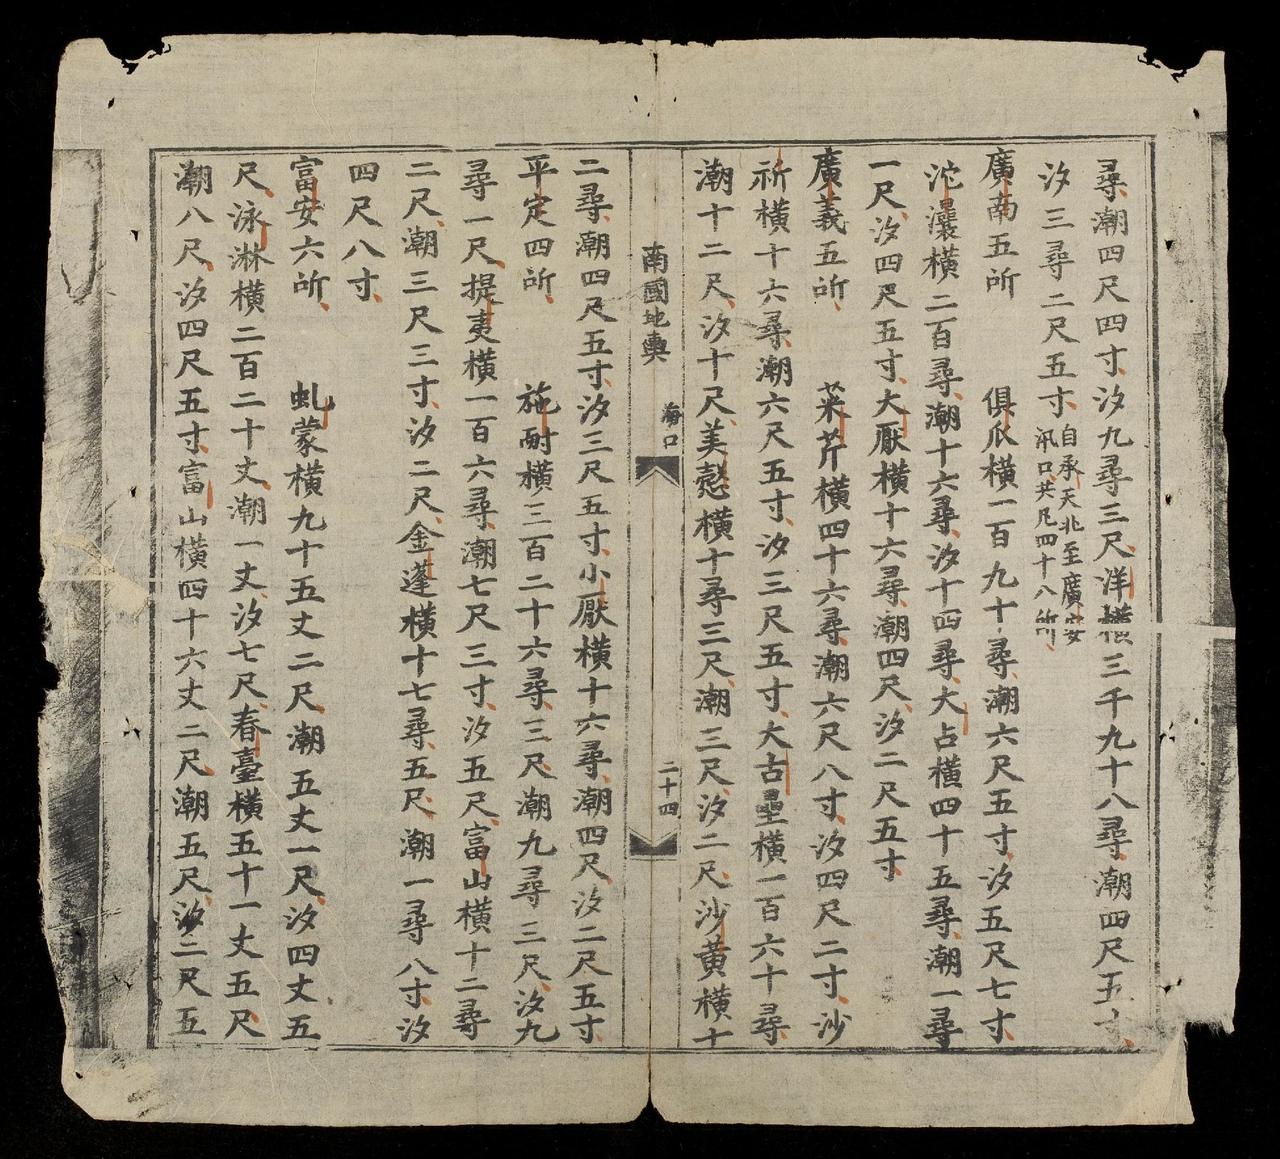 尋潮四尺四寸汐九尋三尺洋橫三千九十八尋潮四尺五寸
汐三尋二尺五寸自承天北至廣安
汛口共凡四十八所
廣南五所　俱瓜橫一百九十尋潮六尺五寸汐五尺七寸
沱灢橫二百尋潮十六尋汐十四尋大占橫四十五尋潮一尋
一尺汐四尺五寸大厭橫十六尋潮四尺汐二尺五寸
廣義五所　菜芹橫四十六尋潮六尺八寸汐四尺二寸沙
祈橫十六尋潮六尺五寸汐三尺五寸大古壘橫一百六十尋
潮十二尺汐十尺美橫十尋三尺潮三尺汐二尺沙黃橫十
南國地輿　海口　二十四
二尋潮四尺五寸汐三尺五寸小厭橫十六尋潮四尺汐二尺五寸
平定四所　施耐橫三百二十六尋三尺潮九尋三尺汐九
尋一尺提夷橫一百六尋潮七尺三寸汐五尺富山橫十二尋
二尺潮三尺三寸汐二尺金蓬橫十七尋五尺潮一尋八寸汐
四尺八寸
富安六所　虬蒙橫九十五丈二尺潮五丈一尺汐四丈五
尺泳淋橫二百二十丈潮一丈汐七尺春臺橫五十一丈五尺
潮八尺汐四尺五寸富山橫四十六丈二尺潮五尺汐二尺五